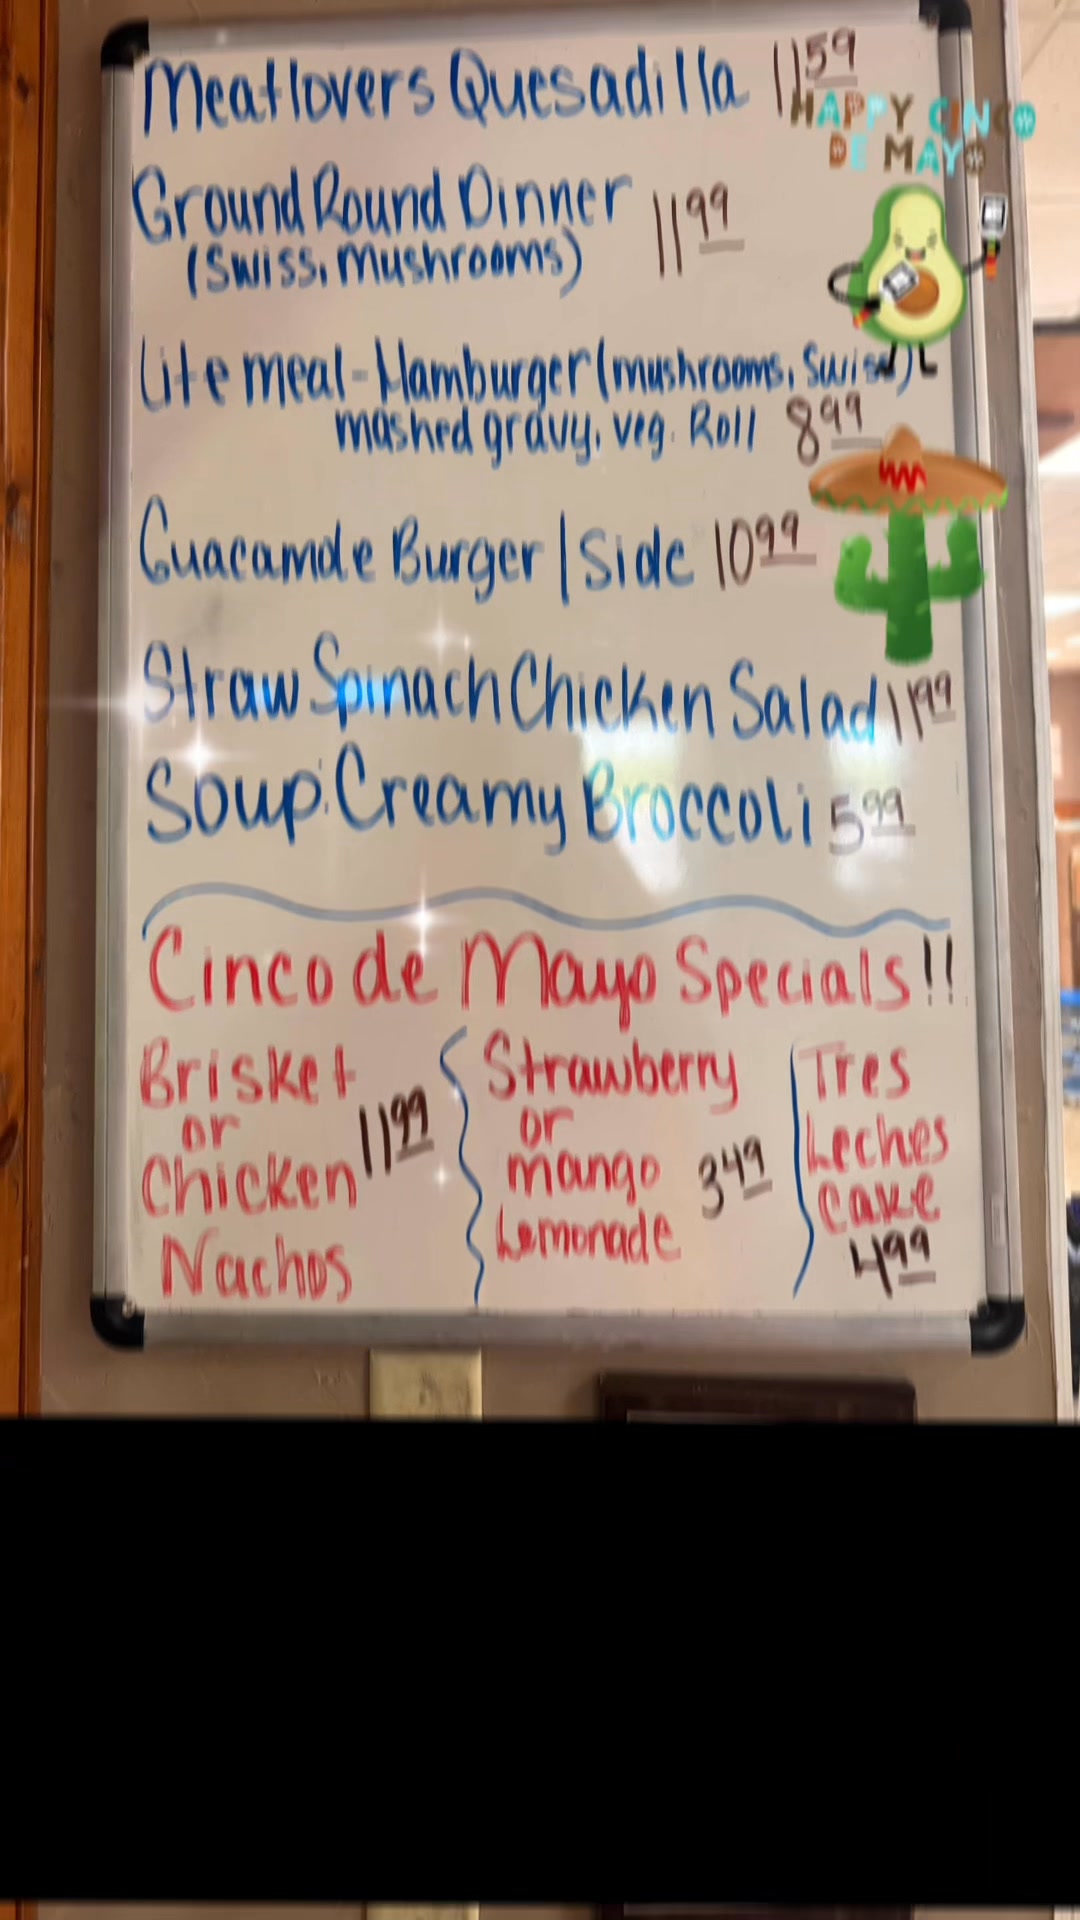 Meatlovers Quesadilla 11 59
HAPPY CINCO
DE MAYO
Ground Round Dinner 11 99
(Swiss, mushrooms)
Lite meal - Hamburger (mushrooms, Swiss)
mashed gravy, veg. Roll 8 99
Guacamole Burger | Side 10 99
Straw Spinach Chicken Salad 11 99
Soup: Creamy Broccoli 5 99
Cinco de Mayo Specials!!
Brisket
or
Chicken 11 99
Nachos
Strawberry
or
mango 3 49
Lemonade
Tres
Leches
Cake
4 99